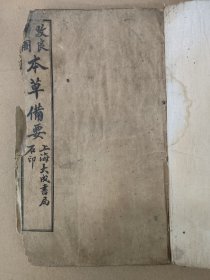 改良
圖
本草備要
上海大成書局
石印